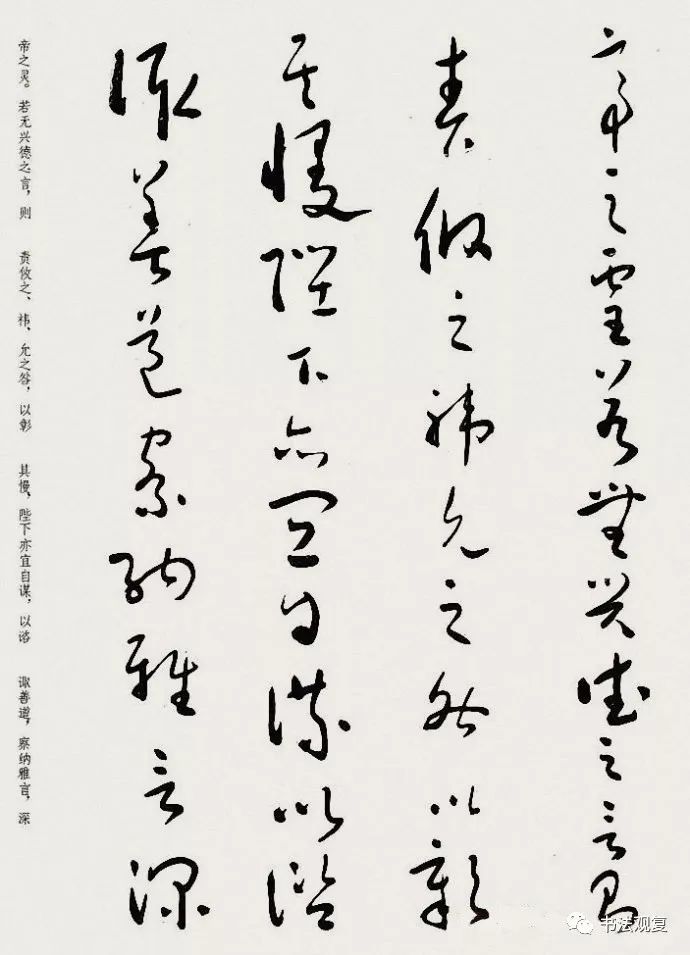 帝之靈若無興德之言則
責攸之禕允之咎以彰
其慢陛下亦宜自謀以諮
諏善道察納雅言深
帝之灵。若无兴德之言，则 责攸之、祎、允之咎，以彰 其慢，陛下亦宜自谋，以谘 诹善道，察纳雅言，深
书法观复